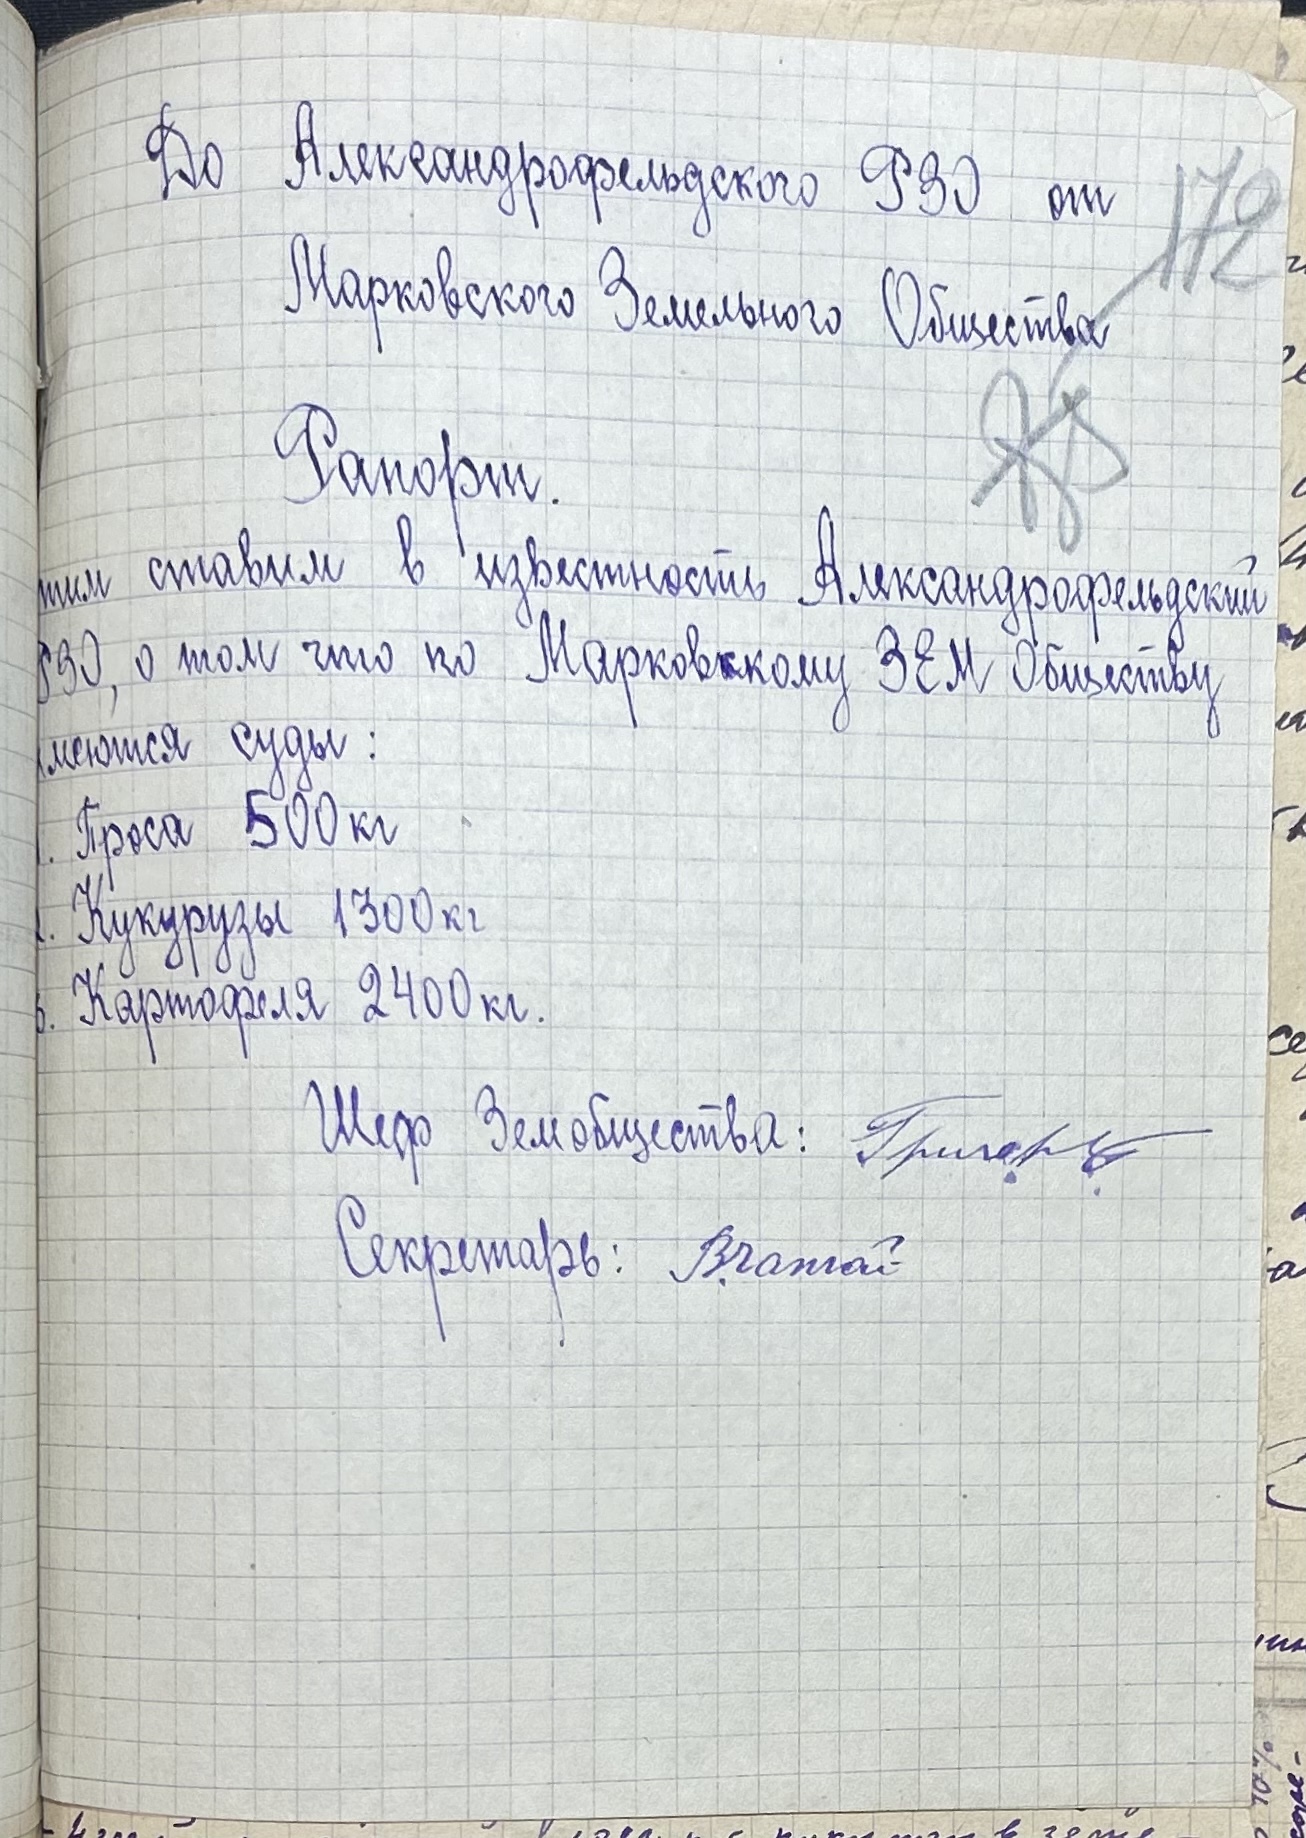 До Александрофельдского РЗО от
172
Марковского Земельного Общества
Рапорт.
тим ставим в известность Александрофельдский
РЗО, о том что по Марковскому ЗЕМ Обществу
меются суды:
1. Проса 500 кг
2. Кукурузы 1300 кг
3. Картофеля 2400 кг.
Шеф Земобщества:
Секретарь: